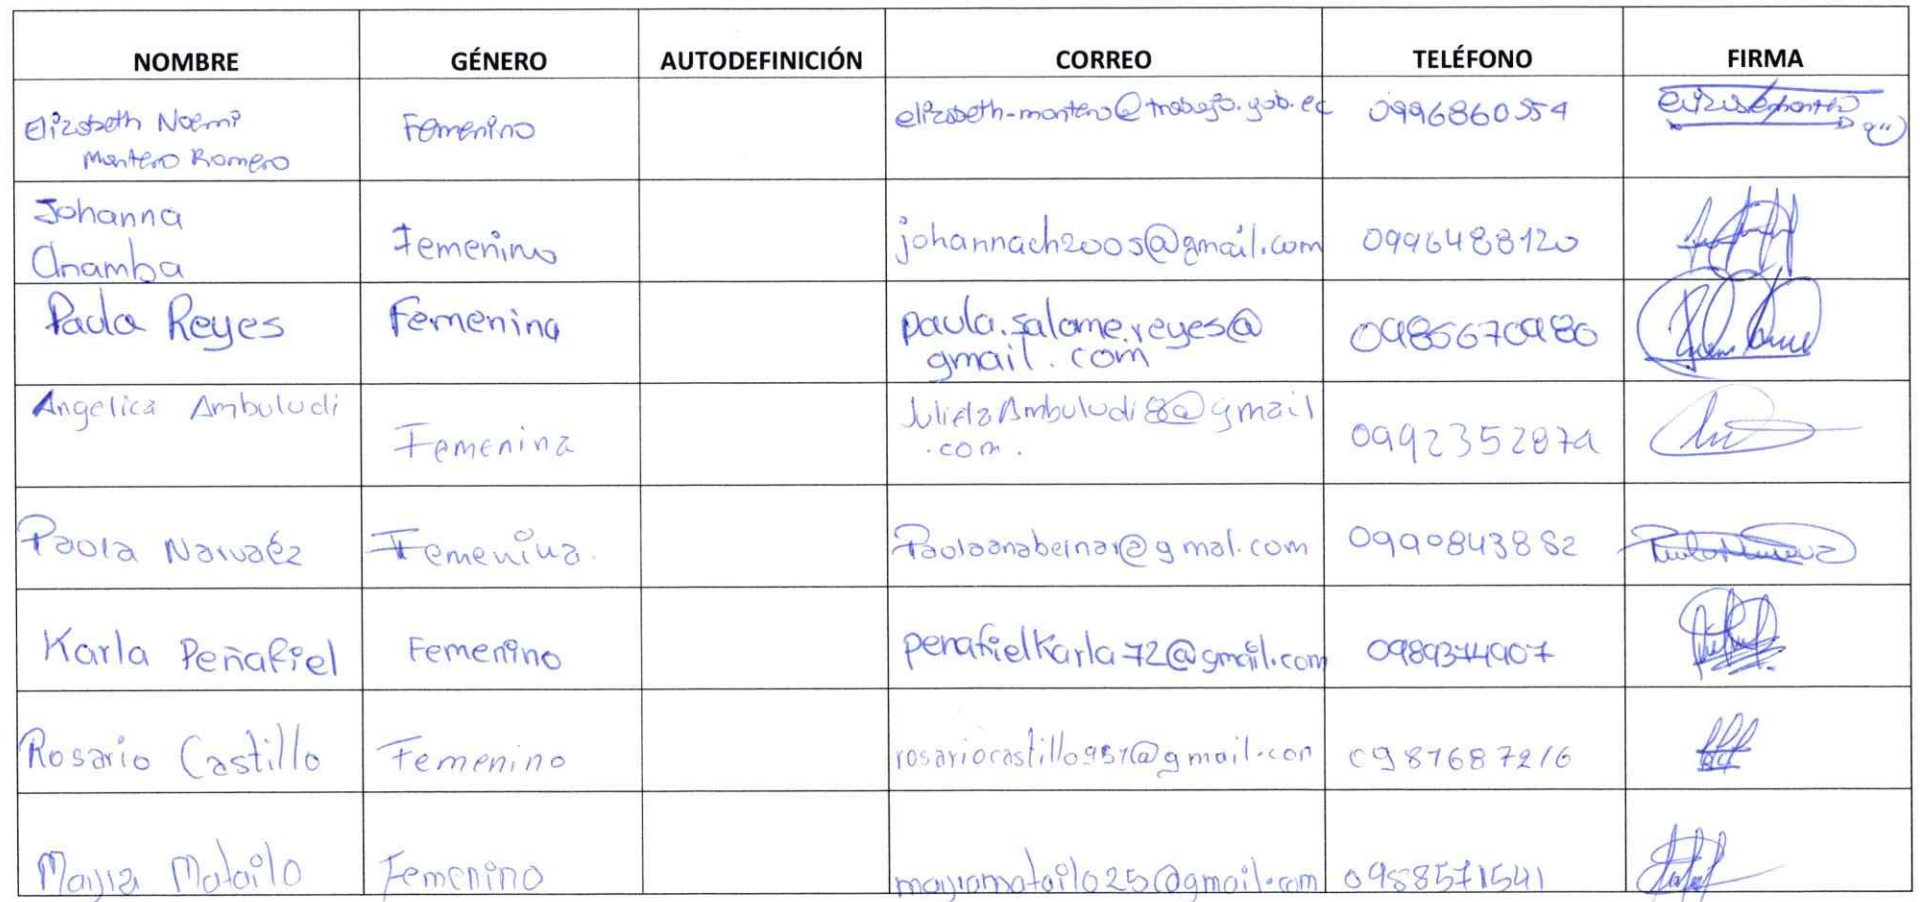 NOMBRE GÉNERO AUTODEFINICIÓN CORREO TELÉFONO FIRMA
Elizabeth Noemi Femenino elizabeth-montero@trabajo.gob.ec 0996860554
Montero Romero
Johanna Femenino johannach2005@gmail.com 0996488120
Chamba
Paula Reyes Femenina paula.salome.reyes@ 0985670980
gmail.com
Angelica Ambuludi Femenina JulietaAmbuludi8@gmail 0992352879
.com.
Paola Narvaéz Femenina. Paolaanabernar@gmal.com 0990843852
Karla Peñafiel Femenino penafielkarla72@gmail.com 0989374907
Rosario Castillo Femenino rosariocastillo987@gmail.con 0987687216
Mayra Matailo Femenino mayramatailo25@gmail.com 0988571541